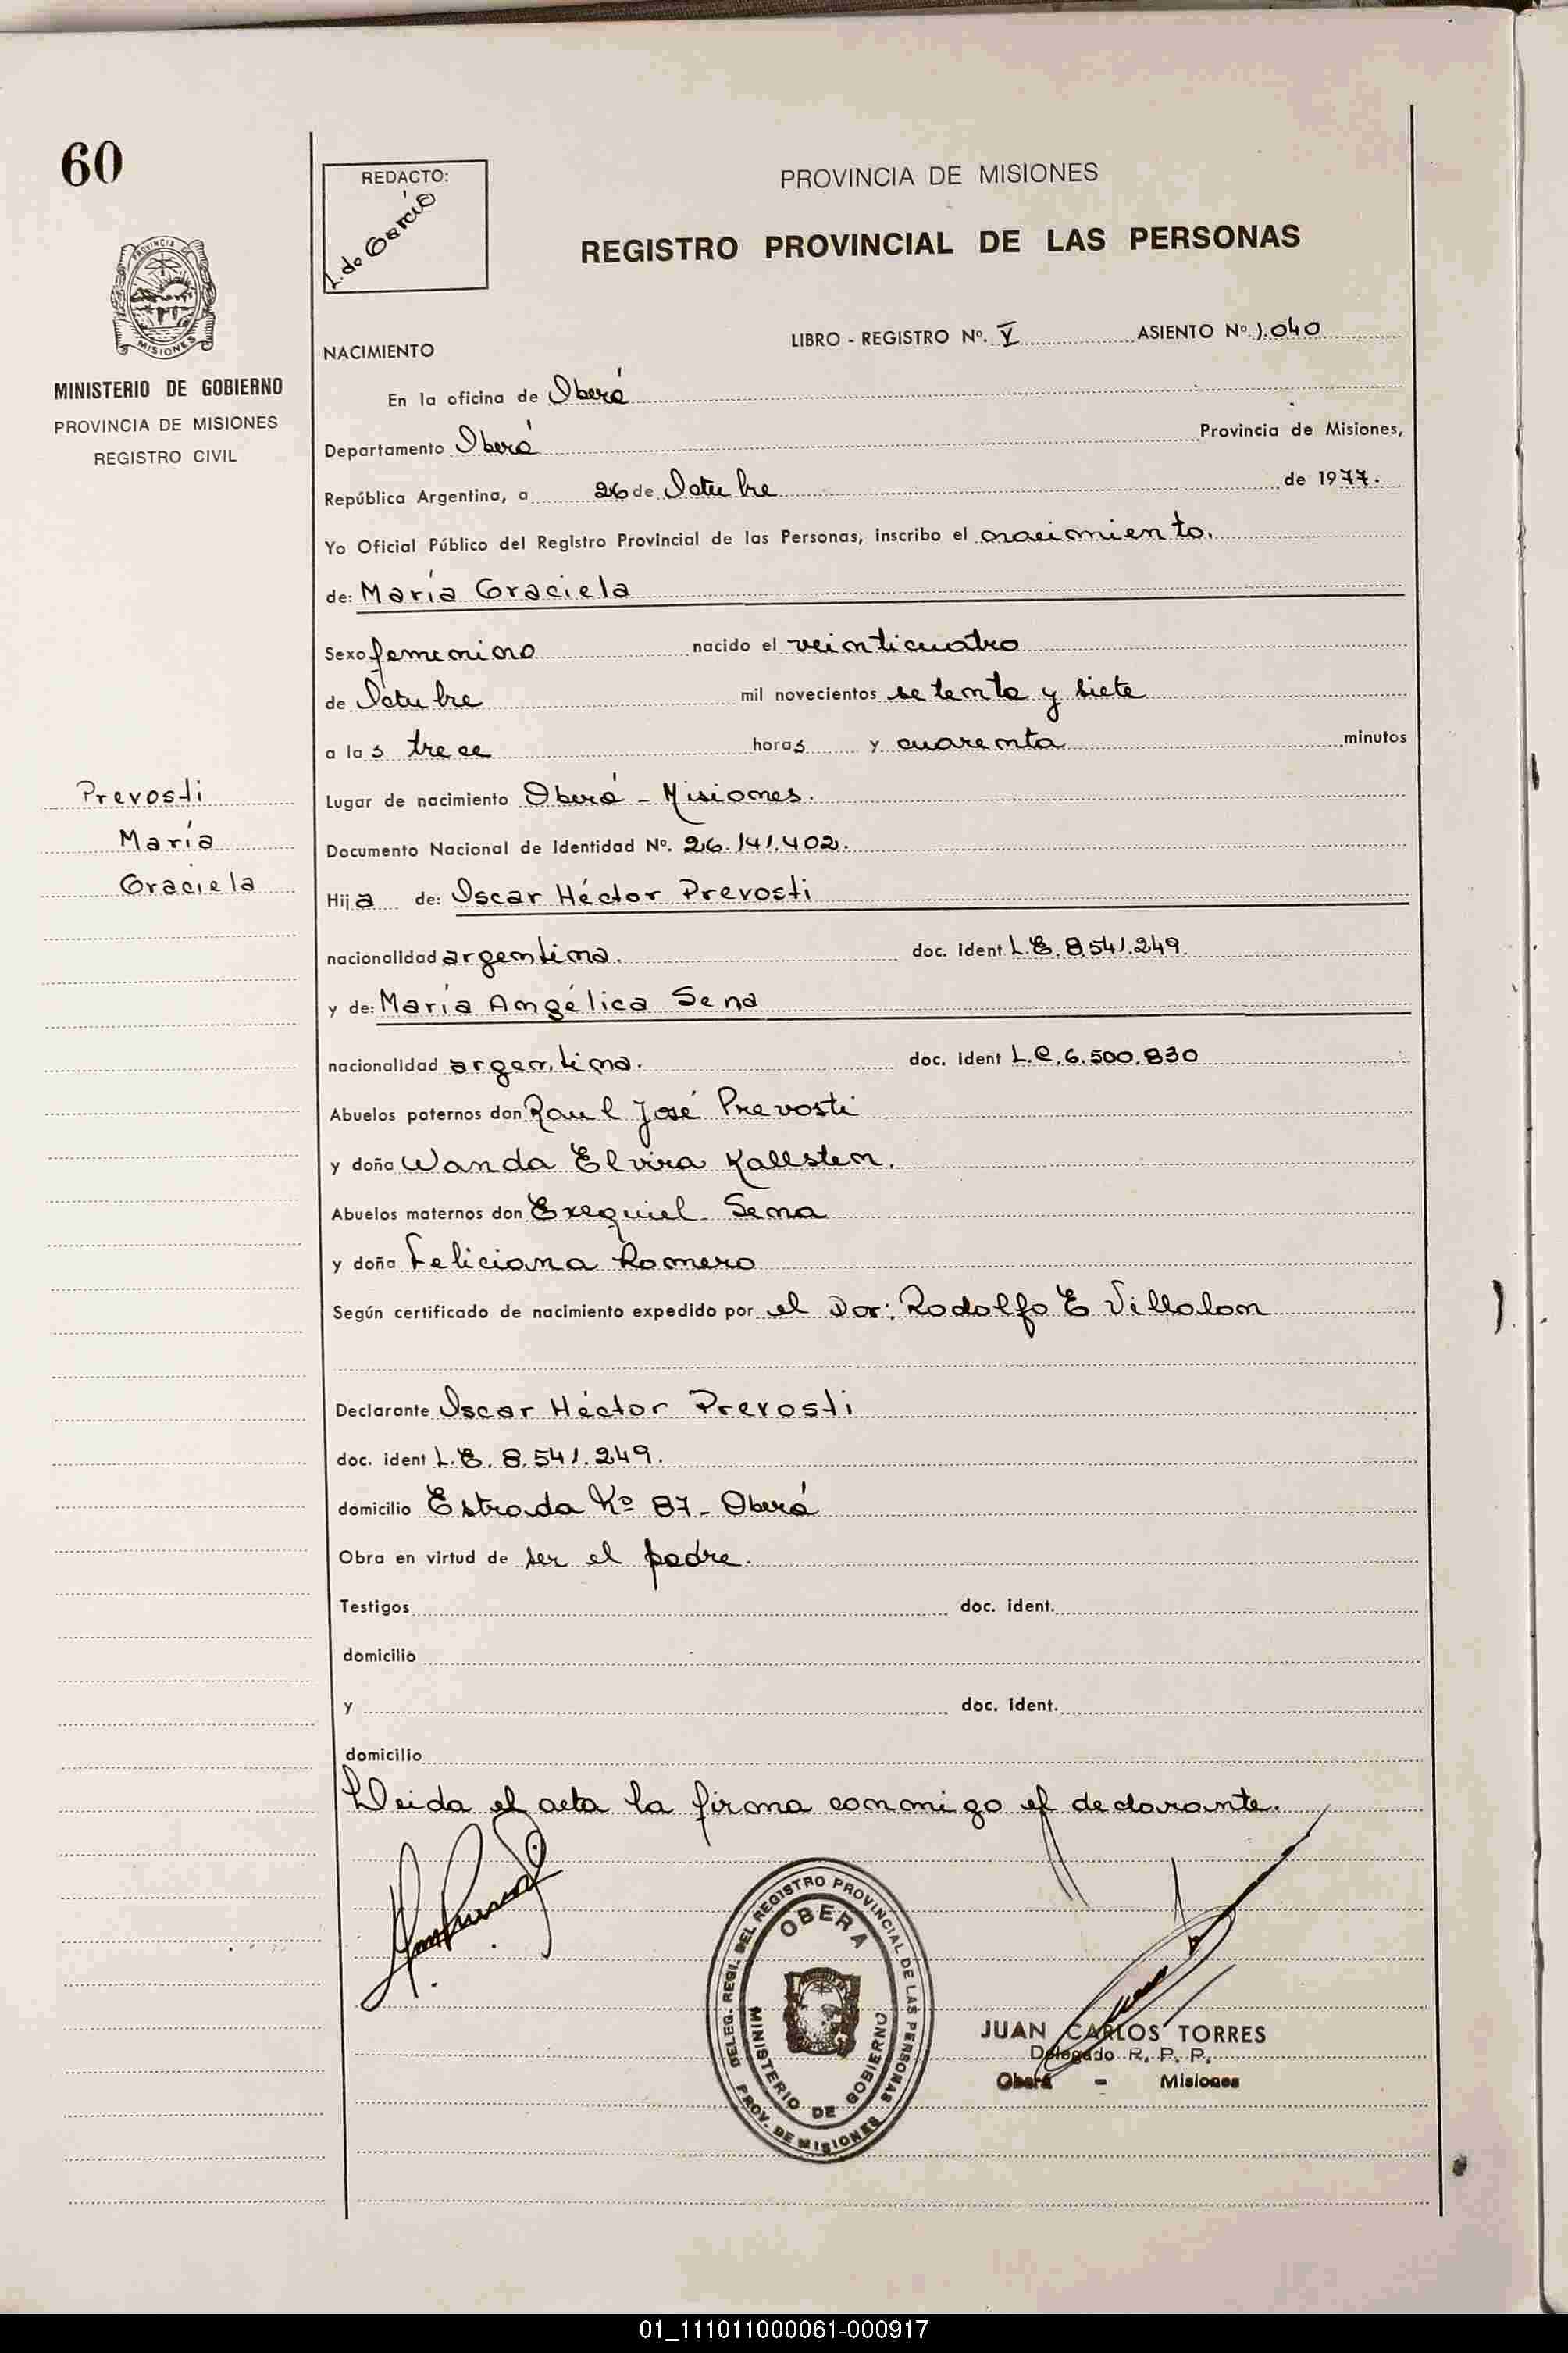 60
REDACTO:
I. de García
PROVINCIA DE MISIONES
REGISTRO PROVINCIAL DE LAS PERSONAS
PROVINCIA DE
MISIONES
MINISTERIO DE GOBIERNO
PROVINCIA DE MISIONES
REGISTRO CIVIL
LIBRO - REGISTRO Nº. V ASIENTO Nº 1.040
NACIMIENTO
En la oficina de Oberá
Departamento Oberá Provincia de Misiones,
República Argentina, a 26 de Octubre de 1977.
Yo Oficial Público del Registro Provincial de las Personas, inscribo el nacimiento.
de: María Graciela
Sexo femenino nacido el veinticuatro
de Octubre mil novecientos setenta y siete
a las trece horas y cuarenta minutos
Prevosti
María
Graciela
Lugar de nacimiento Oberá - Misiones.
Documento Nacional de Identidad Nº. 26.141.402.
Hija de: Oscar Héctor Prevosti
nacionalidad argentina. doc. ident L.E. 8.541.249.
y de: María Angélica Sena
nacionalidad argentina. doc. ident L.C. 6.500.830
Abuelos paternos don Raul José Prevosti
y doña Wanda Elvira Kallsten.
Abuelos maternos don Exequiel Sena
y doña Feliciana Romero
Según certificado de nacimiento expedido por el Dor: Rodolfo E Villalon
Declarante Oscar Héctor Prevosti
doc. ident L.E. 8.541.249.
domicilio Estrada Nº 87 - Oberá
Obra en virtud de ser el padre.
Testigos doc. ident.
domicilio
y doc. ident.
domicilio
Leida el acta la firma conmigo el declarante.
DELEG. REGI. DEL REGISTRO PROVINCIAL DE LAS PERSONAS
OBERA
MINISTERIO DE GOBIERNO
PROV. DE MISIONES
JUAN CARLOS TORRES
Delegado R. P. P.
Oberá - Misiones
01_111011000061-000917